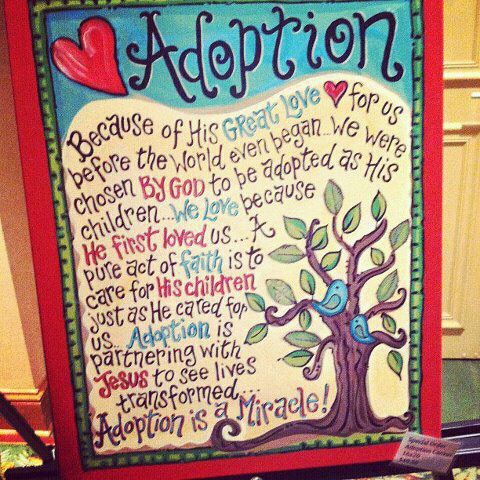 Adoption
Because of His GREAT Love for us
before the world even began...We were
chosen BY GOD to be adopted as His
children...We Love because
He first loved us... A
pure act of faith is to
care for His children
just as He cared for
us... Adoption is
partnering with
Jesus to see lives
transformed....
Adoption is a Miracle!
Adoption Canvas
16x20